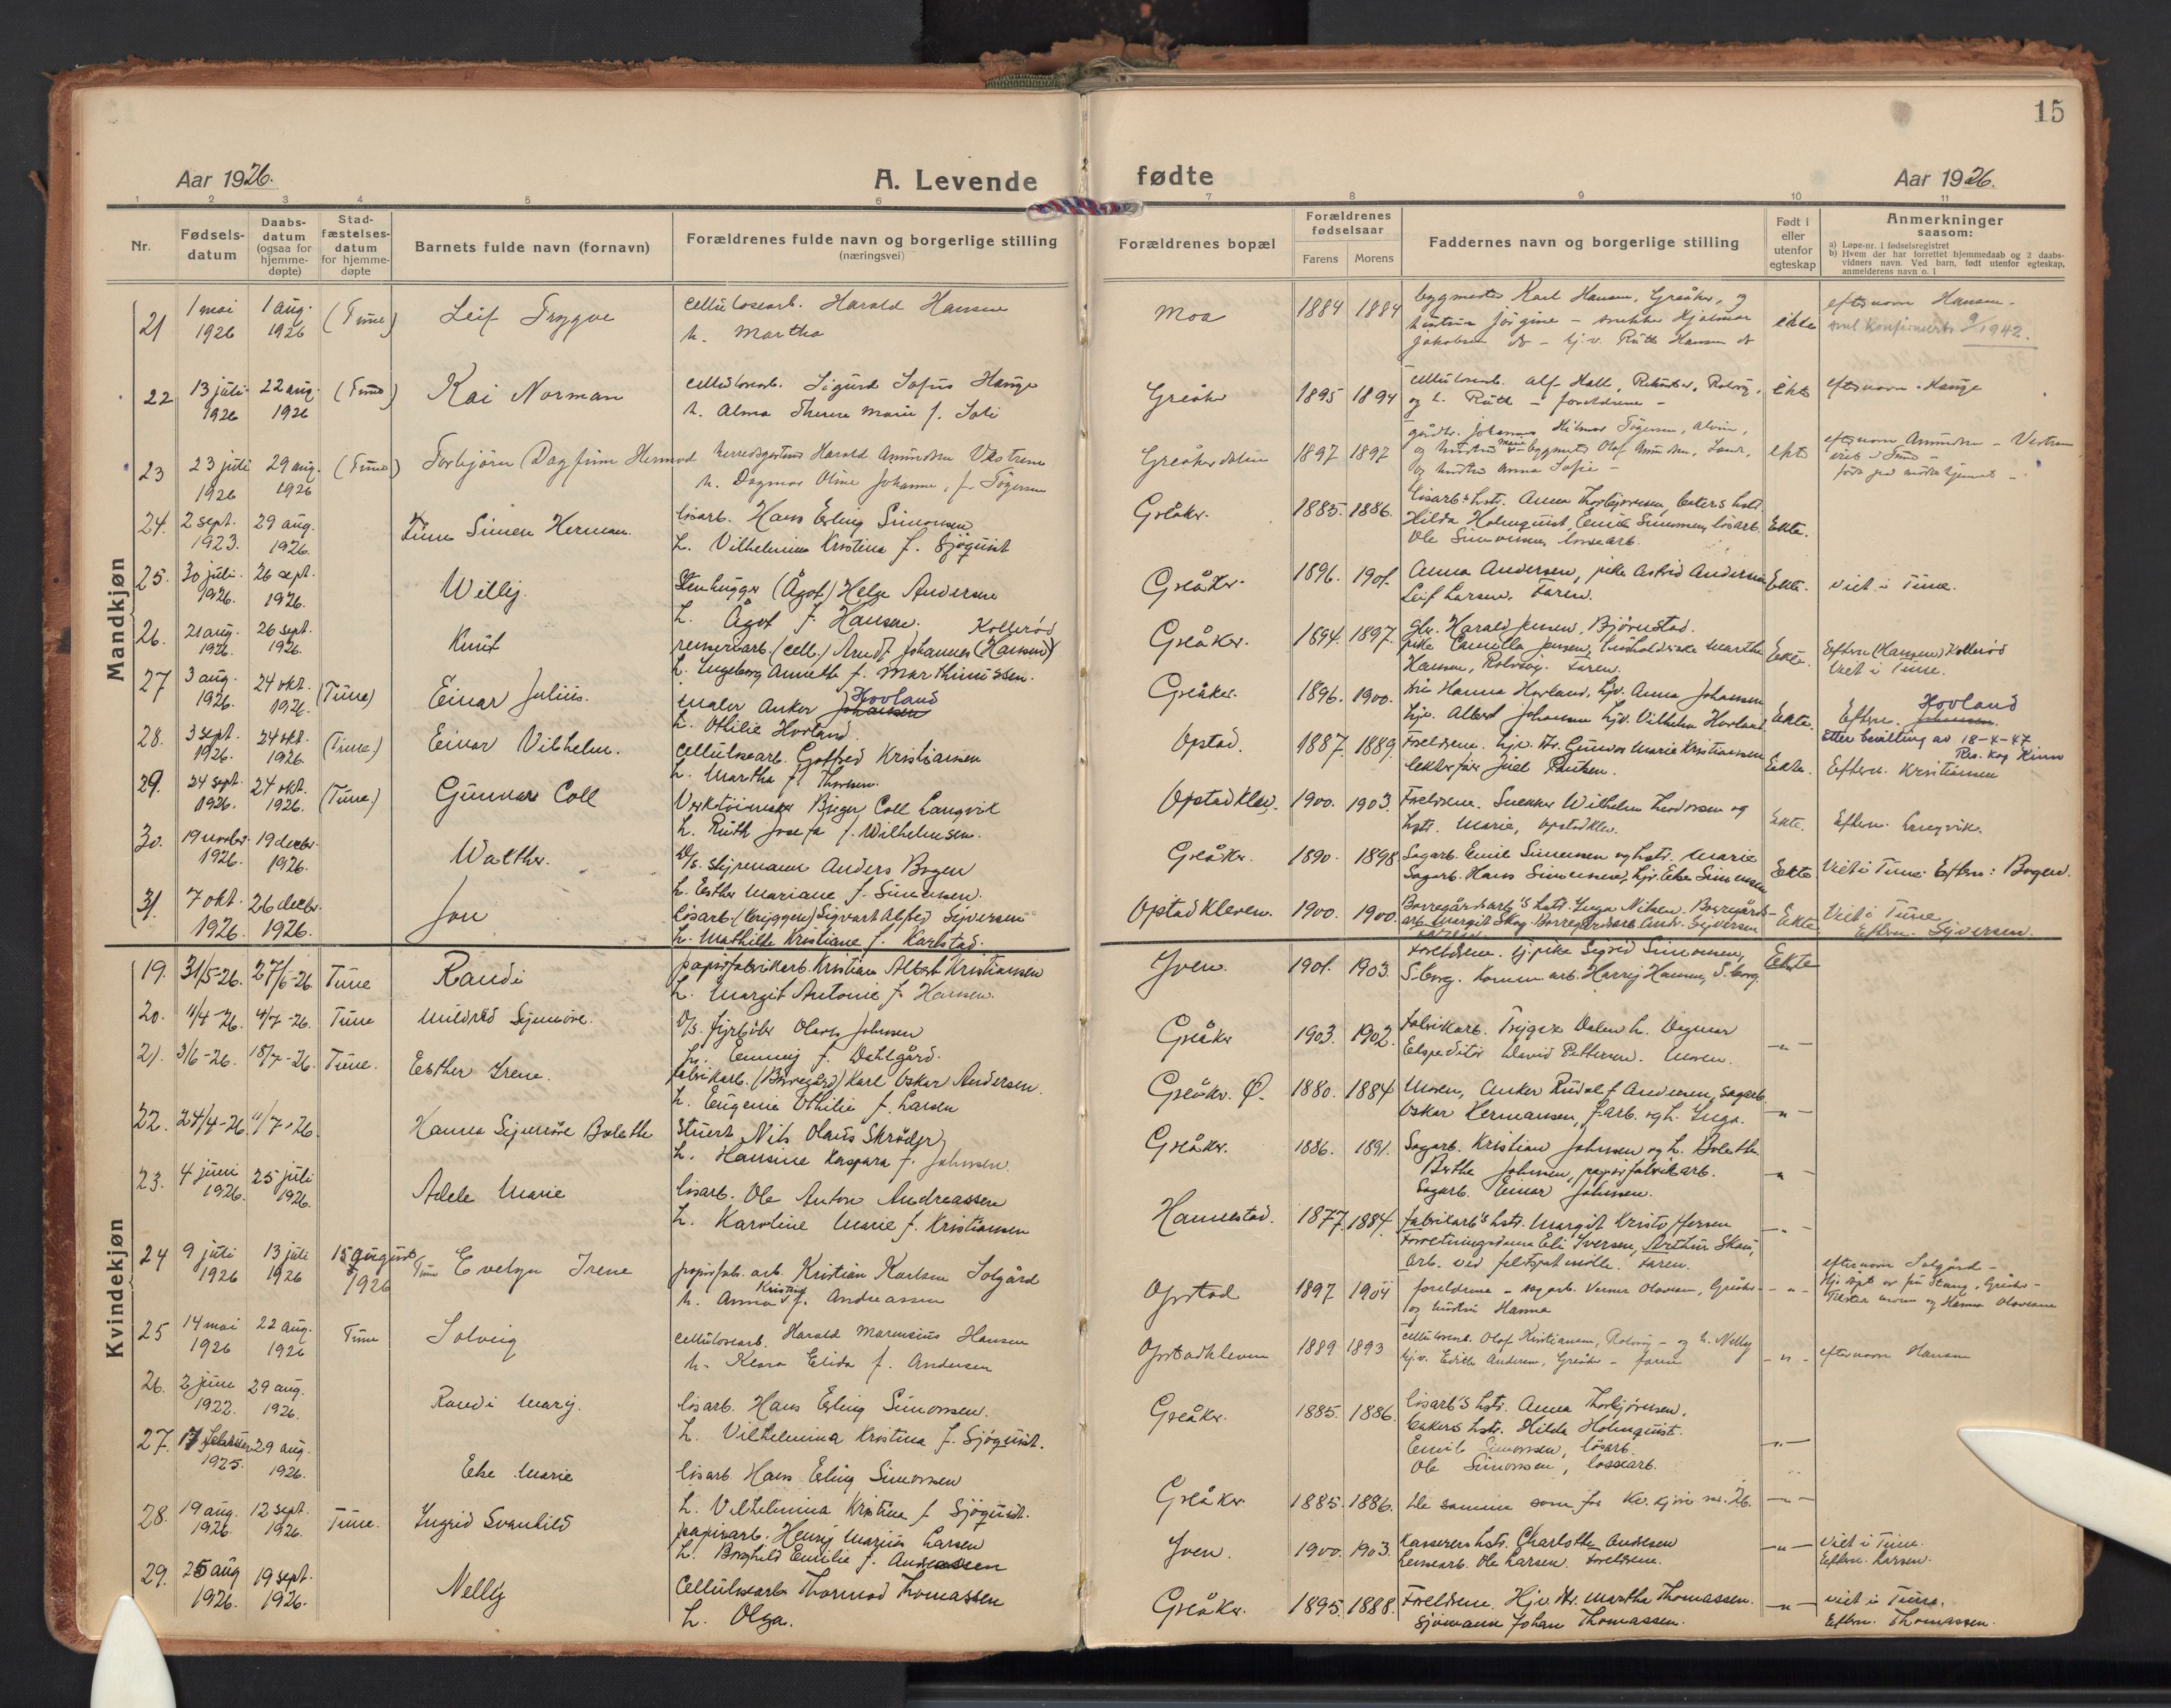 15
Aar 1926.
A. Levende
fødte
Aar 1926.
1 2 3 4 5 6 7 8 9 10 11
Nr.
Fødsels-
datum
Daabs-
datum
(ogsaa for
hjemme-
døpte)
Stad-
fæstelses-
datum
for hjemme-
døpte
Barnets fulde navn (fornavn)
Forældrenes fulde navn og borgerlige stilling
(næringsvei)
Forældrenes bopæl
Forældrenes
fødselsaar
Farens Morens
Faddernes navn og borgerlige stilling
Født i
eller
utenfor
egteskap
Anmerkninger
saasom:
a) Løpe-nr. i fødselsregistret
b) Hvem der har forrettet hjemmedaab og 2 daabs-
vidners navn. Ved barn, født utenfor egteskap,
anmelderens navn o. l
Mandkjøn
21 1 mai 1926 1 aug. 1926 (Tune) Leif Trygve cellulosearb. Harald Hansen
h. Martha
Moa 1884 1884 bygmester Karl Hansen, Greåker, og
hustru Jørgine - snekker Hjalmar
Jakobsen - hj.v. Ruth Hansen
ekte efternavn Hansen -
konfirmert 9/1942.
22 13 juli 1926 22 aug. 1926 (Tune) Kai Norman cellulosearb. Sigurd Sofus Hauge
h. Alma Therese Marie f.
Greåker 1895 1894 cellulosearb. Alf Rolvsøy,
og h. Ruth - foreldrene -
ekte efternavn Hauge
23 23 juli 1926 29 aug. 1926 (Tune) Torbjørn Dagfinn Hermod Harald Amundsen Vestrem
h. Dagmar Oline Johanne, f. Tøgersen
Greåkerdalen 1897 1897 gårdbr. Johannes Hilmar Tøgersen, Alvim,
og hustru - bygmester Olof Amundsen,
og hustru Anna Sofie -
ekte efternavn Amundsen - Vestrem
viet i Tune -
24. 2 sept. 1923. 29 aug. 1926. Finn Simen Herman. løsarb. Hans Erling Simonsen
h. Vilhelmina Kristina f. Sjøquist
Greåker. 1885. 1886. løsarb's hstr. Anna Thorbjørnsen, hstr.
Hilda Holmquist, Emil Simonsen, løsarb.
Ole Simonsen, lossearb.
Ekte.
25. 30 juli. 1926. 26 sept. 1926. Willy. Stenhugger (Ågot) Helge Andersen
h. Ågot f. Hansen.
Greåker. 1896. 1901. Anna Andersen, pike Astrid Andersen
Leif Larsen. Faren.
Ekte. viet i Tune.
26. 21 aug. 1926. 26 sept. 1926. Knut Kollerød
renseriarb. (cell.) Arndt Johannes (Hansen)
h. Ingeborg Annette f. Marthinussen.
Greåker. 1894. 1897. Harald Jensen, Bjørnstad.
pike Camilla Jensen, Marthe
Hansen, Rolvsøy. Faren.
Ekte. Eftern (Hansen) Kollerød
Viet i Tune.
27 3 aug. 1926. 24 okt. 1926. (Tune) Einar Julius. maler Anker Johansen Hovland
h. Othilie Hovland.
Greåker. 1896. 1900. Hanna Hovland, hjv. Anna Johansen
hjv. Albert Johansen hjv. Vilhelm Hovland.
Ekte. Eftern. Johansen Hovland
Etter bevilling av 18-4-47
28. 3 sept. 1926. 24 okt. 1926. (Tune.) Einar Vilhelm. cellulosearb. Gotfred Kristiansen
h. Martha f. Thorsen.
Opstad. 1887. 1889. Foreldrene. hjv. Gunvor Marie Kristiansen
Paulsen.
Ekte. Eftern. Kristiansen
29. 24 sept. 1926. 24 okt. 1926. (Tune.) Gunnar Coll Verktøimaker Birger Coll Langvik
h. Ruth Josefa f. Wilhelmsen.
Opstadklev. 1900. 1903. Foreldrene. Snekker Wilhelm og
hstr. Marie, Opstadklev.
Ekte. Eftern. Langvik.
30. 19 novbr. 1926. 19 decbr. 1926. Walther. D/s. styrmann Anders Bogen
h. Esther Mariane f. Simensen.
Greåker. 1890. 1898 Sagarb. Emil Simensen og hstr. Marie
Sagarb. Hans Simensen, hjv. Else Simensen
Ekte. Viet i Tune. Eftern: Bogen.
31. 7 okt. 1926. 26 decbr. 1926. Jon løsarb. (bryggen) Sigvart Alfred Syversen
h. Mathilde Kristiane f. Karlstad.
Opstadkleven. 1900. 1900. Borregårdsarb's hstr. Inga Nilsen. Borregårds-
arb. Margit Skog. Borregårdsarb. Andr. Syversen
Ekte Viet i Tune
Eftern. Syversen.
Kvindekjøn
19. 31/5-26. 27/6-26. Tune Randi papirfabrikarb. Kristian Albert Kristiansen
h. Margit Antonie f. Hansen.
Yven. 1901. 1903. Foreldrene. hj.pike Sigrid Simonsen,
S.borg. Komm. arb. Harry Hansen, S.borg.
Ekte
20. 11/4-26. 4/7-26. Tune Mildred Synnøve. D/s. fyrbøter Olaves Johnsen
h. Emmy f. Dahlgård.
Greåker 1903. 1902. Fabrikarb. Trygve Dalen h. Dagmar
Ekspeditør David Pettersen. Moren.
-"-
21. 3/6-26. 18/7-26. Tune. Esther Irene. fabrikarb. (Borregård) Karl Oskar Andersen.
h. Eugenie Othilie f. Larsen
Greåker. Ø. 1880. 1884 Moren, Anker Rudolf Andersen, sagarb.
Oskar Hermansen, f.arb. og h. Inga.
-"-
22. 24/4-26. 11/7-26. Hanna Synnøve Bolette Stuert Nils Olaus Skrøder,
h. Hansine Kaspara f. Johnsen.
Greåker. 1886. 1891. Sagarb. Kristian Johnsen og h. Bolette
Berthe Johnsen, papirfabrikarb.
Sagarb. Einar Johnsen.
-"-
23. 4 juni 1926. 25 juli 1926. Adele Marie løsarb. Ole Anton Andreassen
h. Karoline Marie f. Kristiansen
Hannestad. 1877 1884. fabrikarb's hstr. Margit Kristoffersen
Forretningsdame Eli Iversen, Arthur Skau,
arb. ved feltspatmølle. Faren.
-"-
24 9 juli 1926 13 juli 1926 15 august 1926 Tune Evelyn Irene papirfab. arb. Kristian Karlsen Solgård
h. Anna Kristine f. Andreassen
Opstad 1897 1904 foreldrene - sagarb. Verner Olavesen, Greåker -
og hustru Hanna
-"- efternavn Solgård -
Hj. døpt av fru Stang, Greåker -
moren og Hanna Olavesen
25 14 mai 1926 22 aug. 1926 Tune Solveig cellulosearb. Harald Marensius Hansen
h. Klara Elida f. Andersen
Opstadkleven 1889 1893 cellulosearb. Olof Kristiansen, Rolvsøy - og h. Nelly
hj.v. Edith Andersen, Greåker - faren
-"- efternavn Hansen
26. 2 juni 1922. 29 aug. 1926. Randi Mary. løsarb. Hans Erling Simonsen.
h. Vilhelmina Kristina f. Sjøquist.
Greåker. 1885. 1886. løsarb's hstr. Anna Thorbjørnsen.
hstr. Hilda Holmquist.
Emil Simonsen, løsarb.
Ole Simonsen, lossearb.
-"-
27. 17 februar 1925. 29 aug. 1926. Else Marie løsarb. Hans Erling Simonsen
h. Vilhelmina Kristina f. Sjøquist.
Greåker. 1885. 1886. De samme som for kv. kjøn nr. 26. -"-
28. 19 aug. 1926. 12 sept. 1926. Tune. Ingrid Svanhild papirarb. Henry Marius Larsen
h. Borghild Emilie f. Andreassen
Yven. 1900. 1903. Kasserers hstr. Charlotte Andresen
Lensearb. Ole Larsen. Foreldrene.
-"- viet i Tune.
Eftern. Larsen.
29. 25 aug 1926. 19 sept. 1926. Nelly Cellulosearb. Thormod Thomassen
h. Olga.
Greåker. 1895. 1888. Foreldrene. Hjv. Martha Thomassen.
Sjømann Johan Thomassen.
-"- viet i Tune.
Eftern. Thomassen.